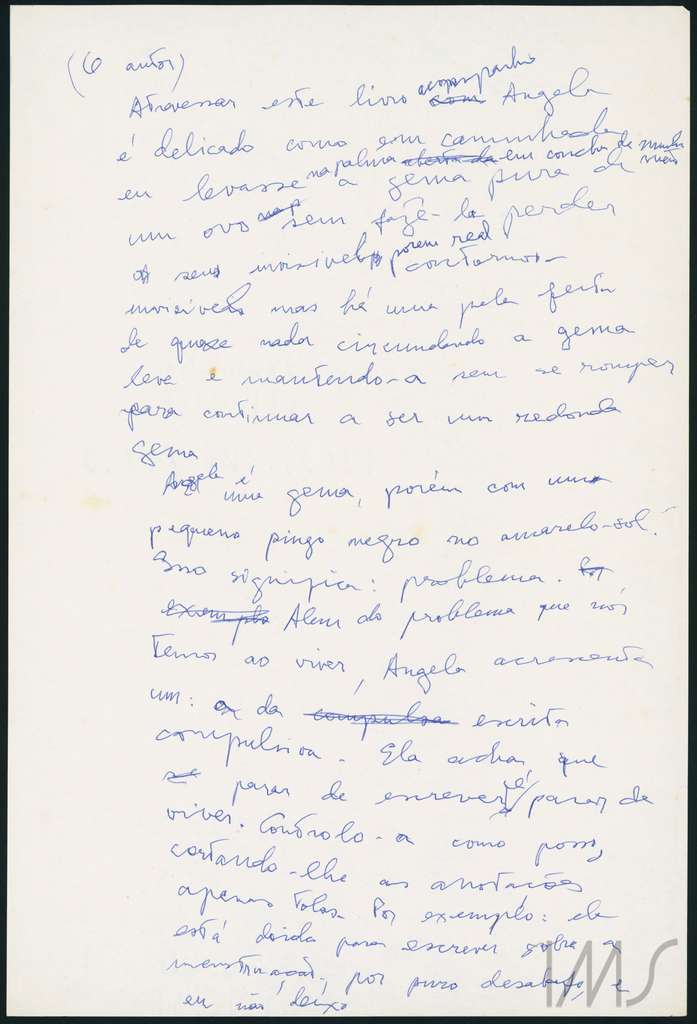 (O autor)
Atravessar este livro acompanhando com Angela
é delicado como em caminhada
eu levasse na palma aberta da em concha da minha mão a gema pura de
um ovo sem fazê-la perder
os seus invisíveis porém real contornos -
invisíveis mas há uma pele feita
de quase nada circundando a gema
leve e mantendo-a sem se romper
para continuar a ser um redonda
gema
Angela é uma gema, porém com uma
pequeno pingo negro no amarelo-sol.
Isso significa: problema.
Exemplo Alem do problema que nós
temos ao viver, Angela acrescenta
um: o da compulsa escrita
compulsiva. Ela acha que
se parar de escrever é parar de
viver. Controlo-a como posso,
cortando-lhe as anotações
apenas tolas. Por exemplo: ela
está doida para escrever sobre a
menstruação, por puro desabafo, e
eu não deixo
IMS